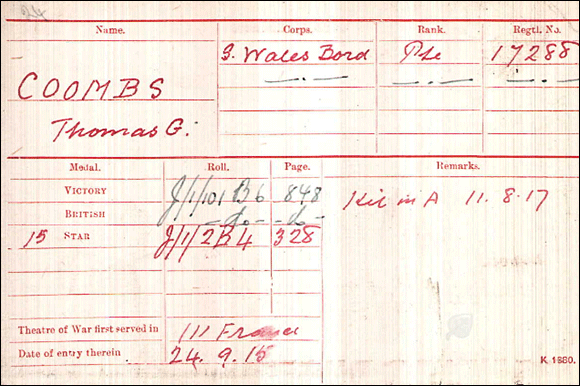 Name. Corps. Rank. Regtl. No.
S. Wales Bord Pte 17288
COOMBS —.— —.— —.—
Thomas G.
Medal. Roll. Page. Remarks.
VICTORY J/1/101 B6 848 Kil in A 11.8.17
BRITISH —do— —do—
15 STAR J/1/2B4 328
Theatre of War first served in (1) France
Date of entry therein 24.9.15
K 1380.